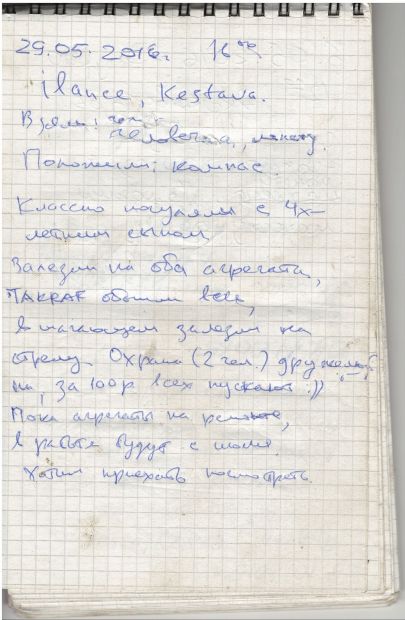 29.05.2016г. 16⁰⁰
ilance, Kestava.
Взяли: человечка, монету.
Положили: компас.
Классно погуляли с 4х-
летним сыном
Залезли на оба агрегата,
TAKRAF обошли весь,
в шагающем залезли на
стрелу. Охрана (2 чел.) дружелюб-
на, за 100р всех пускают :))
Пока агрегаты на ремонте,
в работе будут с июля.
Хотим приехать посмотреть.